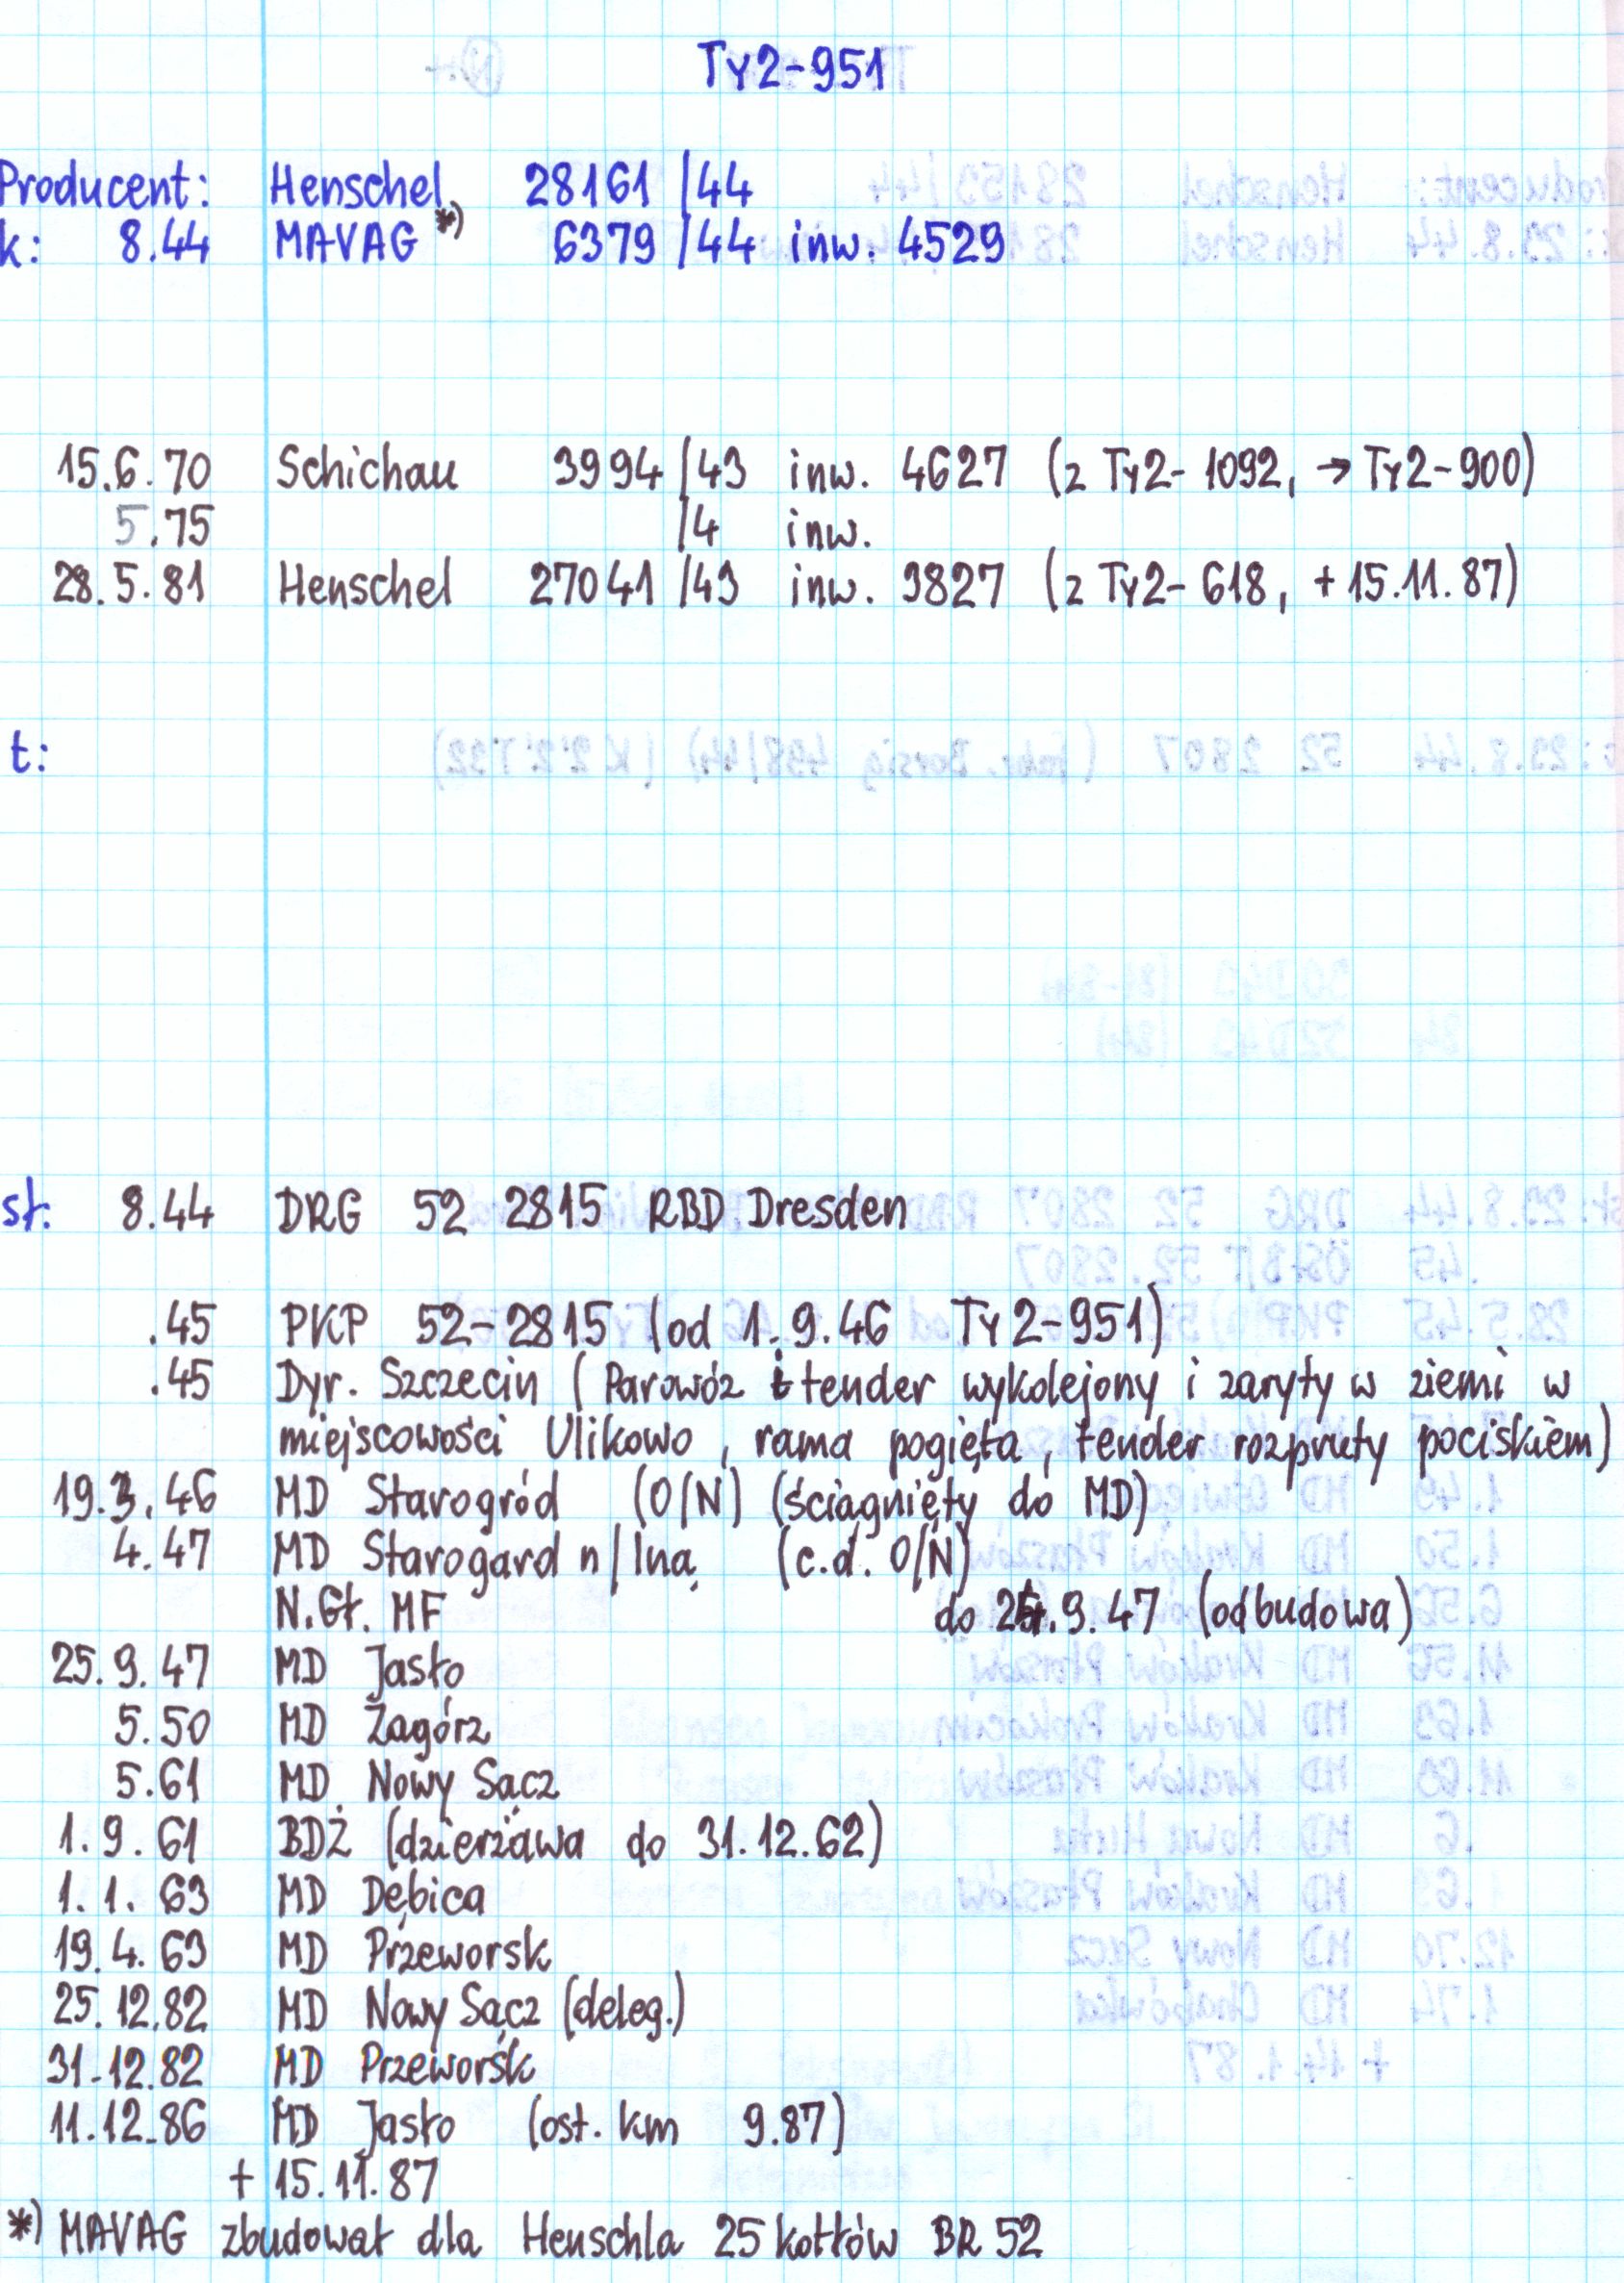 Ty2-951
Producent: Henschel 28161 /44
k: 8.44 MAVAG *) 6379 /44 inw. 4529
15.6.70 Schichau 3994 /43 inw. 4627 (z Ty2-1092, → Ty2-900)
5.75 /4 inw.
28.5.81 Henschel 27041 /43 inw. 3827 (z Ty2-618, + 15.11.87)
t:
st: 8.44 DRG 52 2815 RBD Dresden
.45 PKP 52-2815 (od 1.9.46 Ty2-951)
.45 Dyr. Szczecin (Parowóz i tender wykolejony i zaryty w ziemi w
miejscowości Ulikowo, rama pogięta, tender rozpruty pociskiem)
19.3.46 MD Starogród (O/N) (ściągnięty do MD)
4.47 MD Starogard n/Iną (c.d. O/N)
N.Gł. MF do 24.9.47 (odbudowa)
25.9.47 MD Jasło
5.50 MD Zagórz
5.61 MD Nowy Sącz
1.9.61 BDŻ (dzierżawa do 31.12.62)
1.1.63 MD Dębica
19.4.63 MD Przeworsk
25.12.82 MD Nowy Sącz (deleg.)
31.12.82 MD Przeworsk
11.12.86 MD Jasło (ost. km 9.87)
+ 15.11.87
*) MAVAG zbudował dla Henschla 25 kotłów BR 52